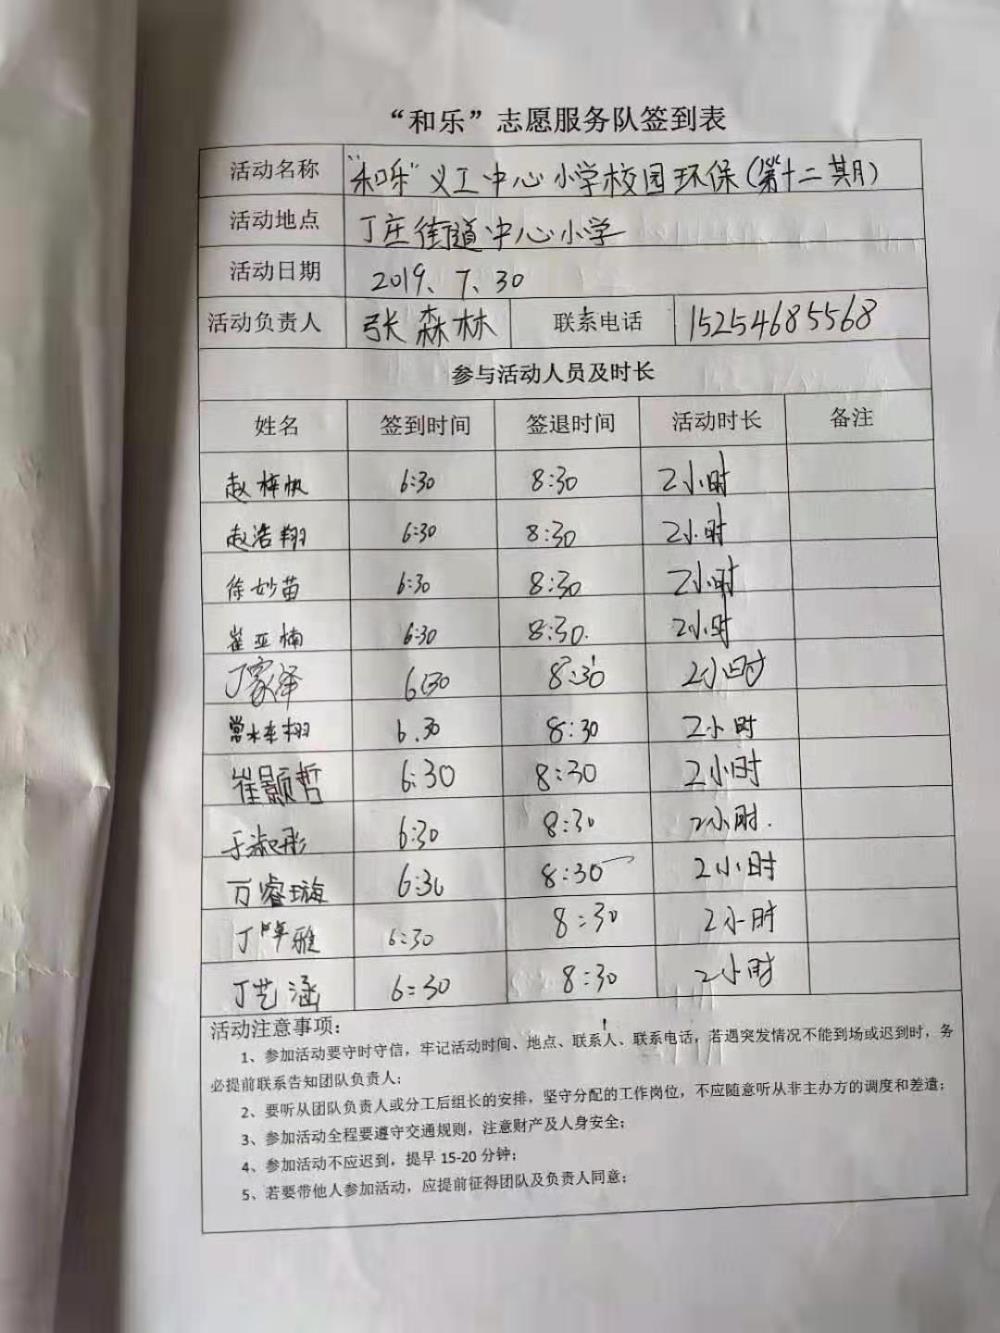 “和乐”志愿服务队签到表
活动名称 “和乐”义工中心小学校园环保(第十二期)
活动地点 丁庄街道中心小学
活动日期 2019、7、30
活动负责人 张森林 联系电话 15254685568
参与活动人员及时长
姓名 签到时间 签退时间 活动时长 备注
赵梓帆 6:30 8:30 2小时
赵浩翔 6:30 8:30 2小时
徐妙苗 6:30 8:30 2小时
崔亚楠 6:30 8:30. 2小时
丁家泽 6:30 8:30 2小时
常 栩 6.30 8:30 2小时
崔颢哲 6:30 8:30 2小时
于淑彤 6:30 8:30 2小时.
万睿璇 6:30 8:30 2小时
丁 雅 6:30 8:30 2小时
丁艺涵 6:30 8:30 2小时
活动注意事项:
1、参加活动要守时守信，牢记活动时间、地点、联系人、联系电话，若遇突发情况不能到场或迟到时，务
必提前联系告知团队负责人;
2、要听从团队负责人或分工后组长的安排，坚守分配的工作岗位，不应随意听从非主办方的调度和差遣;
3、参加活动全程要遵守交通规则，注意财产及人身安全;
4、参加活动不应迟到，提早 15-20 分钟;
5、若要带他人参加活动，应提前征得团队及负责人同意;